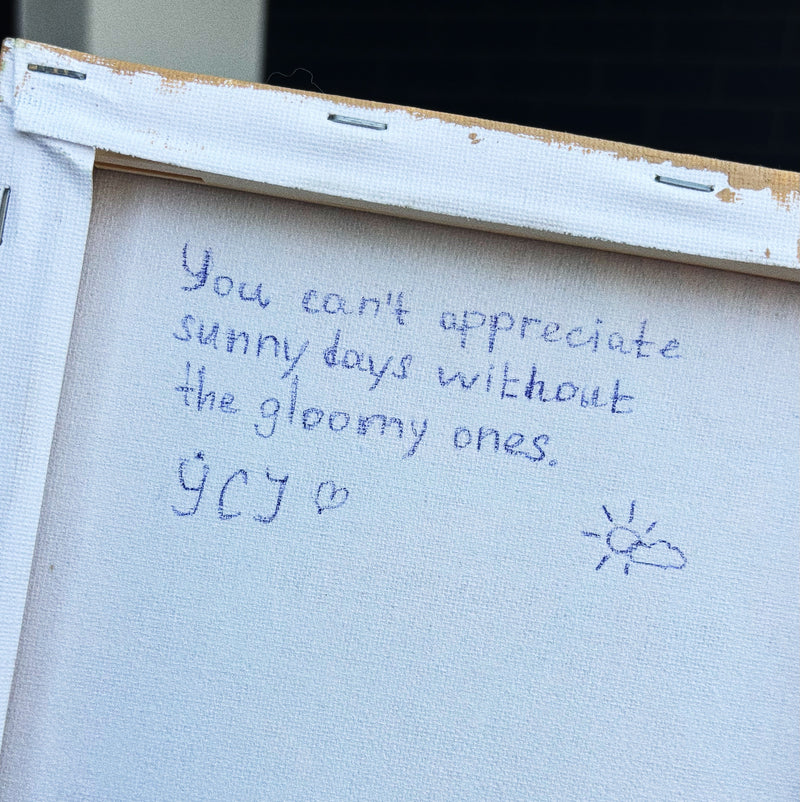 You can't appreciate
sunny days without
the gloomy ones.
ẎCJ ♡